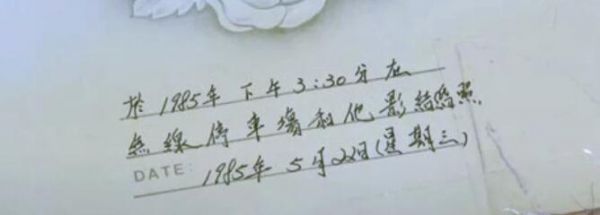 於1985年下午3:30分在
無線停車場和他影結婚照
DATE: 1985年5月22日(星期三)